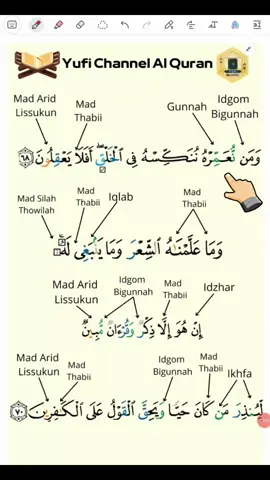 Yufi Channel Al Quran
Mad Arid Lissukun
Mad Thabii
Gunnah
Idgom Bigunnah
وَمَن نُّعَمِّرْهُ نُنَكِّسْهُ فِى ٱلْخَلْقِ ۖ أَفَلَا يَعْقِلُونَ ٦٨
Mad Silah Thowilah
Mad Thabii
Iqlab
Mad Thabii
وَمَا عَلَّمْنَـٰهُ ٱلشِّعْرَ وَمَا يَنۢبَغِى لَهُۥٓ ۚ
Mad Arid Lissukun
Idgom Bigunnah
Mad Thabii
Idzhar
إِنْ هُوَ إِلَّا ذِكْرٌ وَقُرْءَانٌ مُّبِينٌ
Mad Arid Lissukun
Mad Thabii
Idgom Bigunnah
Mad Thabii
Ikhfa
لِّيُنذِرَ مَن كَانَ حَيًّا وَيَحِقَّ ٱلْقَوْلُ عَلَى ٱلْكَـٰفِرِينَ ٧٠